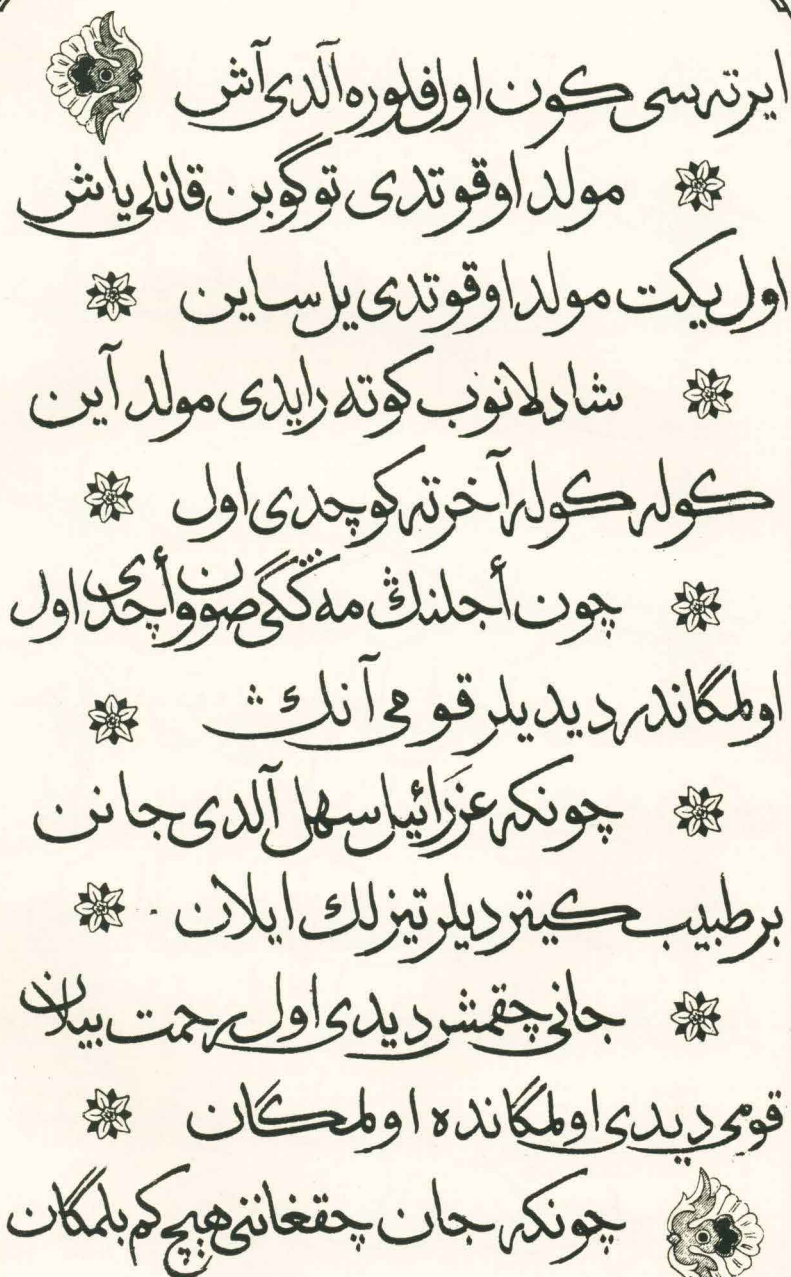 ايرته‌سى كون اول فلوره آلدى آش
مولد اوقوتدى توگوبن قانلى ياش
اول يكت مولد اوقوتدى يل ساين
شادلانوب كوته رايدى مولد آين
كوله كوله آخرته كوچدى اول
چون أجلنڭ مه‌ڭگى صوون أچدى اول
اولمگاندر ديديلر قومى آنڭ
چونكه عزرَائيل سهل آلدى جانن
بر طبيب كيترديلر تيزلك ايلان
جانى چقمش ديدى اول رحمت بيلان
قومى ديدى اولمگانده اولمكان
چونكه جان چقغاننى هيچ كم بلمگان